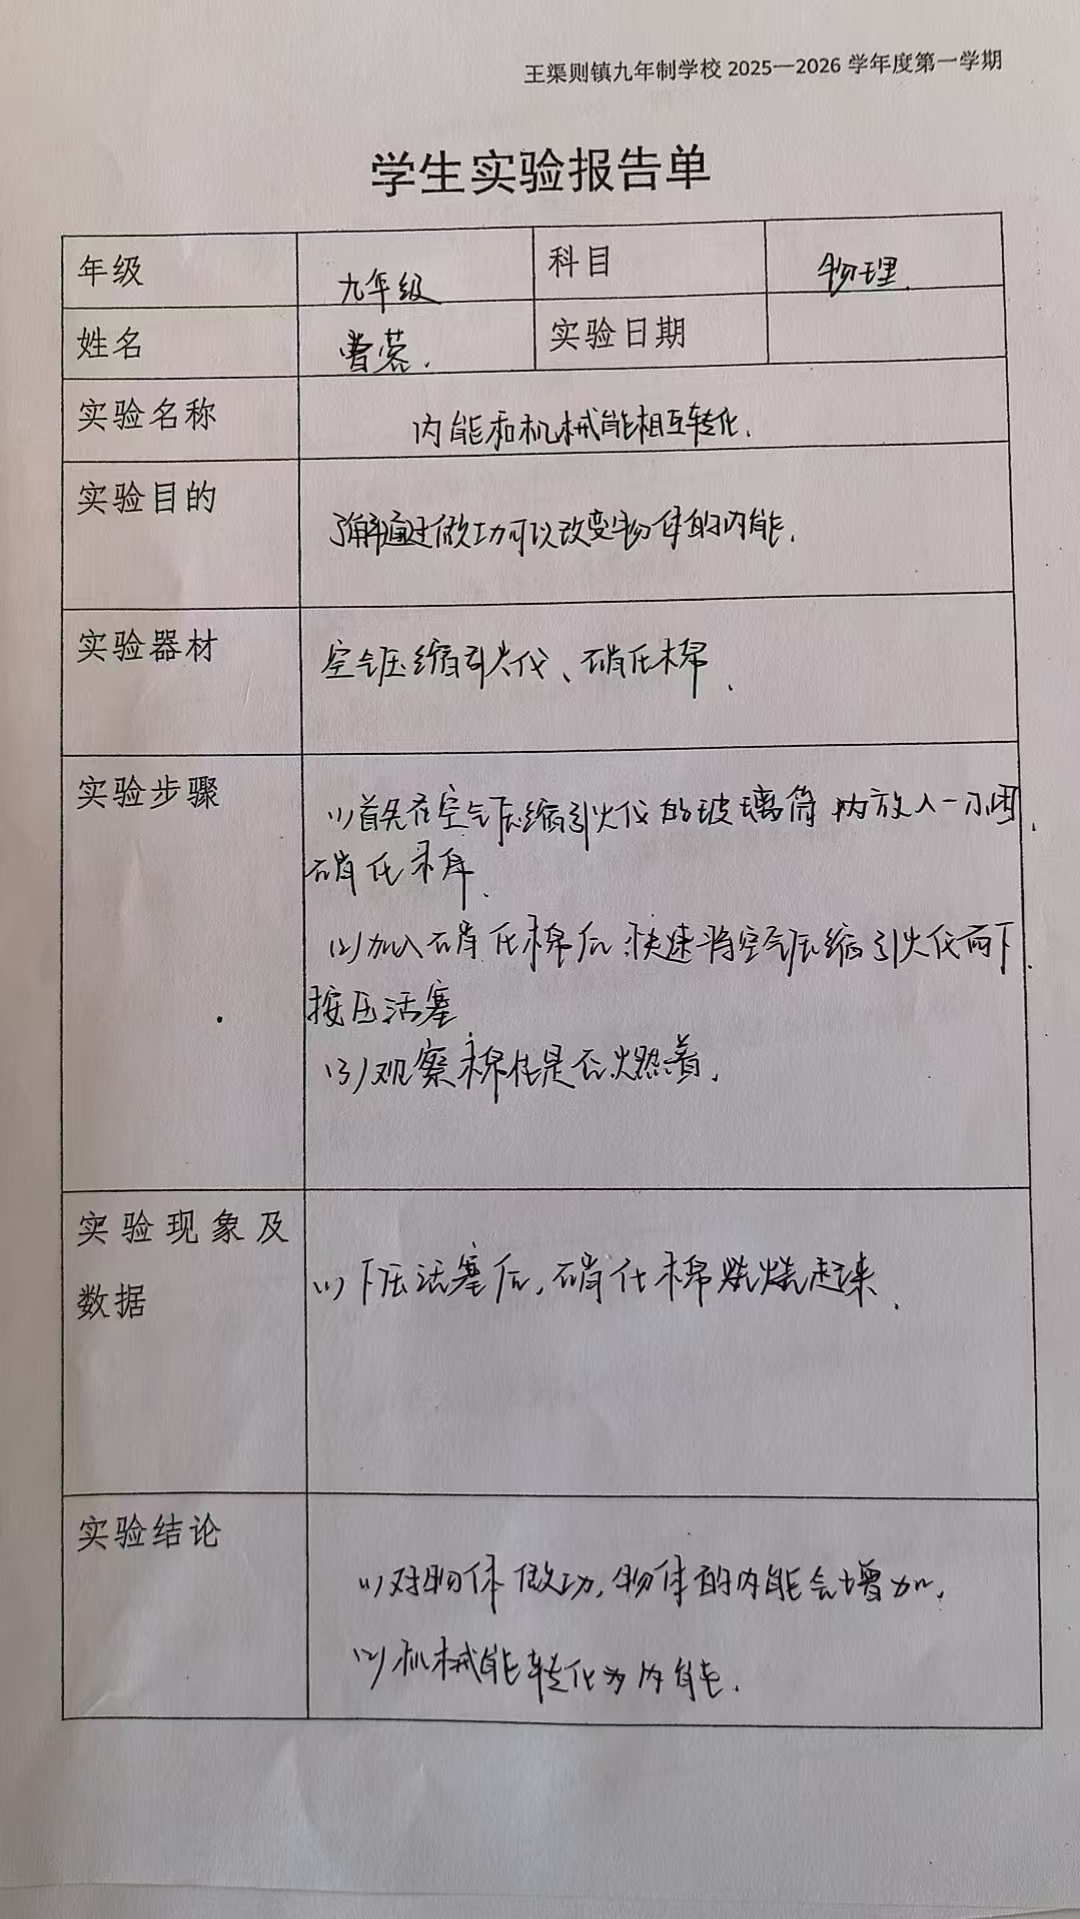 王渠则镇九年制学校 2025—2026 学年度第一学期
学生实验报告单
年级 九年级 科目 物理.
姓名 曹蓉. 实验日期
实验名称 内能和机械能相互转化.
实验目的 了解通过做功可以改变物体的内能.
实验器材 空气压缩引火仪、硝化棉.
实验步骤 (1)首先在空气压缩引火仪的玻璃筒内放入一小团
硝化棉.
(2)加入硝化棉后快速将空气压缩引火仪向下.
按压活塞
(3)观察棉花是否燃着.
实验现象及
数据 (1)下压活塞后,硝化棉燃烧起来.
实验结论 (1)对物体做功,物体的内能会增加.
(2)机械能转化为内能.